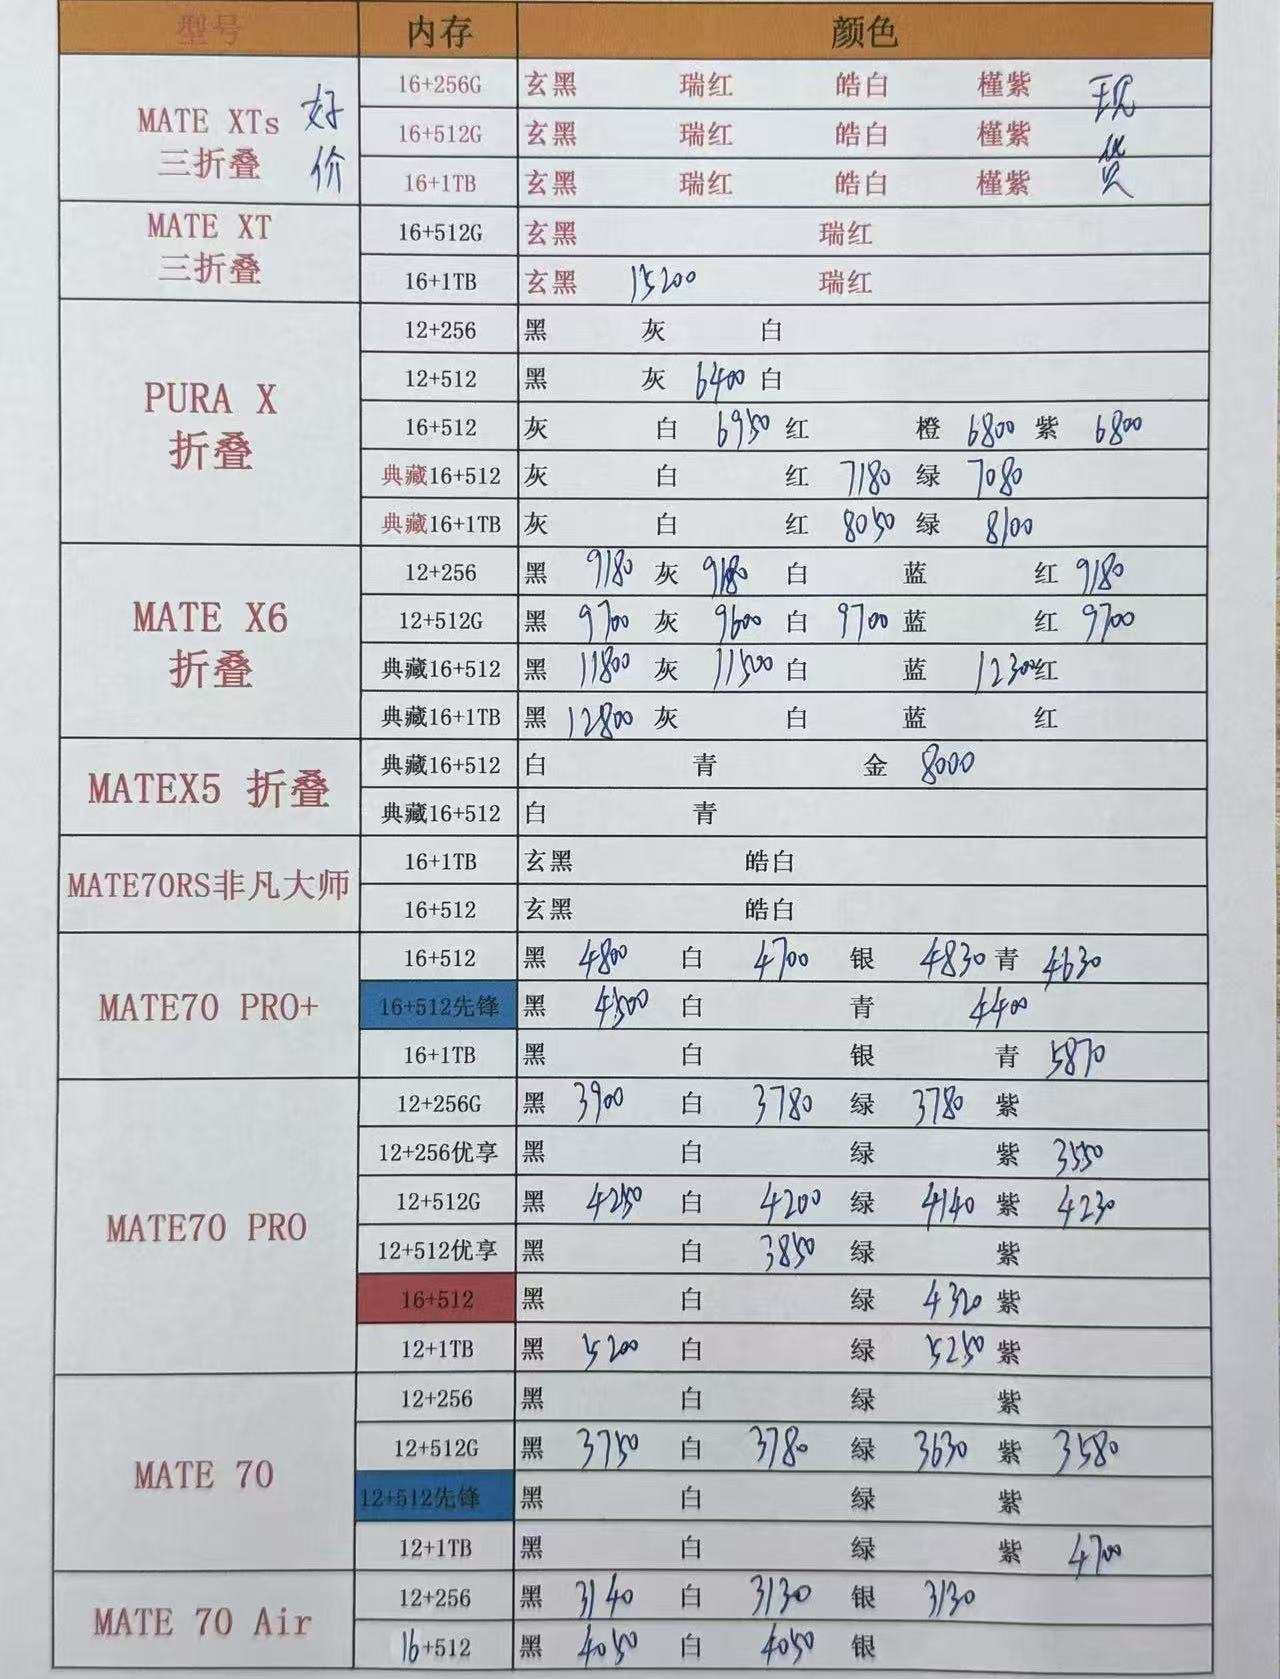 型号 内存 颜色
MATE XTs 三折叠 好价 现货
16+256G 玄黑 瑞红 皓白 槿紫
16+512G 玄黑 瑞红 皓白 槿紫
16+1TB 玄黑 瑞红 皓白 槿紫
MATE XT 三折叠
16+512G 玄黑 瑞红
16+1TB 玄黑 15200 瑞红
PURA X 折叠
12+256 黑 灰 白
12+512 黑 灰 6400 白
16+512 灰 白 6950 红 橙 6800 紫 6800
典藏16+512 灰 白 红 7180 绿 7080
典藏16+1TB 灰 白 红 8050 绿 8100
MATE X6 折叠
12+256 黑 9180 灰 9180 白 蓝 红 9180
12+512G 黑 9700 灰 9600 白 9700 蓝 红 9700
典藏16+512 黑 11800 灰 11500 白 蓝 12300 红
典藏16+1TB 黑 12800 灰 白 蓝 红
MATEX5 折叠
典藏16+512 白 青 金 8000
典藏16+512 白 青
MATE70RS非凡大师
16+1TB 玄黑 皓白
16+512 玄黑 皓白
MATE70 PRO+
16+512 黑 4800 白 4700 银 4830 青 4630
16+512先锋 黑 4500 白 青 4400
16+1TB 黑 白 银 青 5870
MATE70 PRO
12+256G 黑 3900 白 3780 绿 3780 紫
12+256优享 黑 白 绿 紫 3550
12+512G 黑 4250 白 4200 绿 4140 紫 4230
12+512优享 黑 白 3850 绿 紫
16+512 黑 白 绿 4320 紫
12+1TB 黑 5200 白 绿 5250 紫
MATE 70
12+256 黑 白 绿 紫
12+512G 黑 3750 白 3780 绿 3630 紫 3580
12+512先锋 黑 白 绿 紫
12+1TB 黑 白 绿 紫 4700
MATE 70 Air
12+256 黑 3140 白 3130 银 3130
16+512 黑 4050 白 4050 银